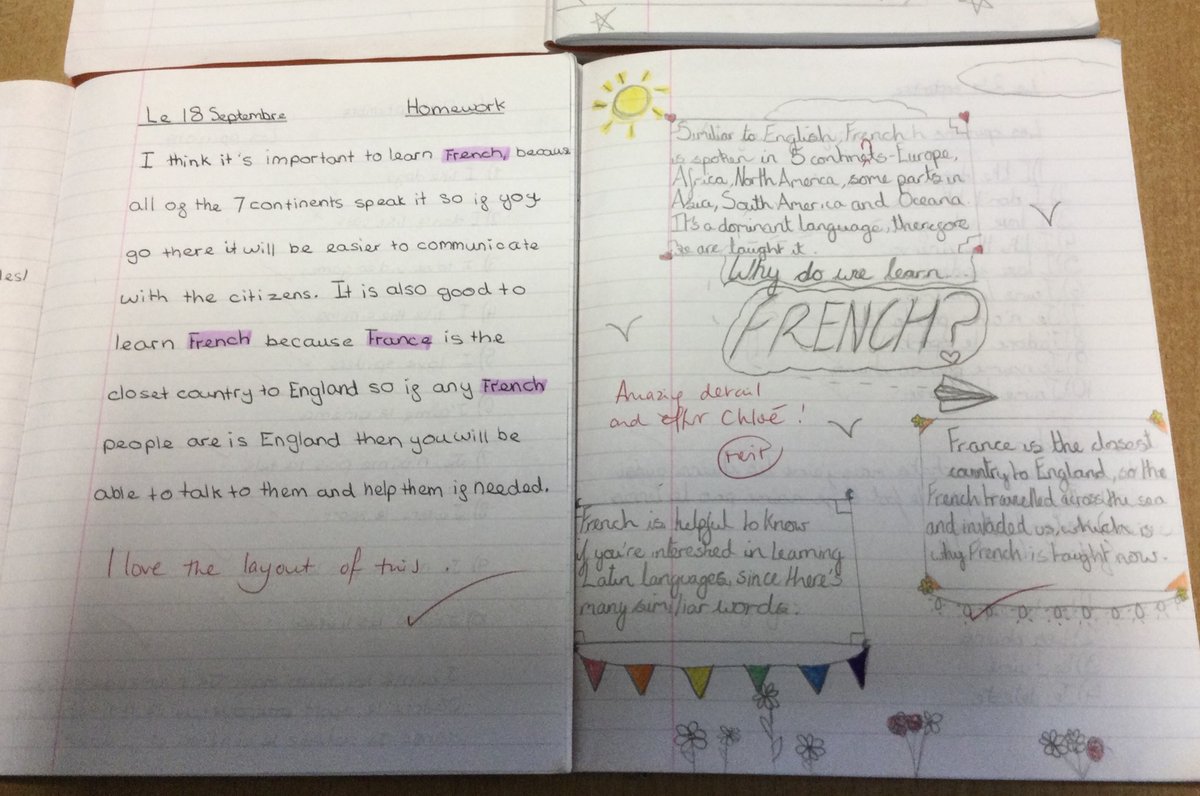 Le 18 Septembre
Homework
I think it's important to learn French, becaus
all of the 7 continents speak it so if yoy
go there it will be easier to communicate
with the citizens. It is also good to
learn French because France is the
closet country to England so if any French
people are is England then you will be
able to talk to them and help them if needed.
I love the layout of this.
les/
Similiar to English, French
is spoken in 5 continets - Europe,
Africa, North America, some parts in
Asia, South America and Oceana
It's a dominant language, therefore
we are taught it.
Why do we learn...
FRENCH?
Amazing detail
and effor Chloé!
merit
France is the closest
country to England, so the
French travelled across the sea
and invaded us, which is
why French is taught now.
French is helpful to know
if you're interested in learning
Latin languages, since there's
many similiar words.